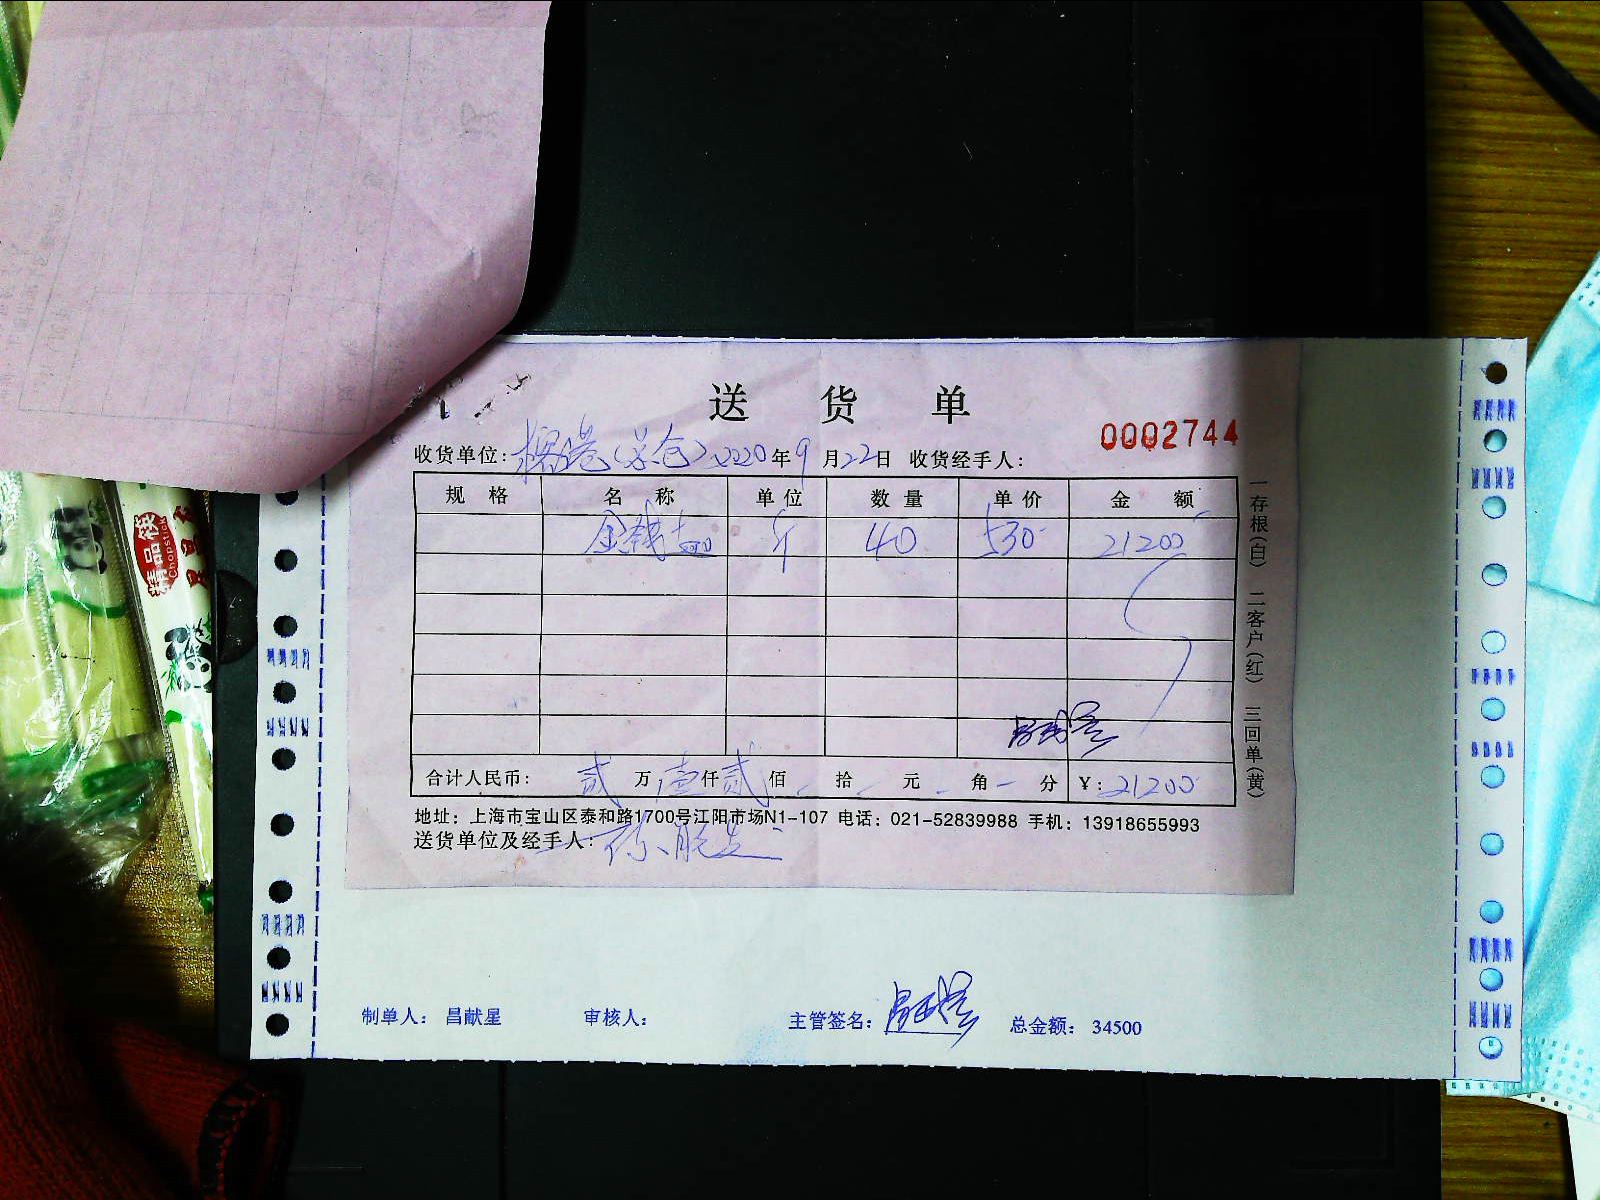 送 货 单
0002744
收货单位: 2020年9月22日 收货经手人:
规 格 名 称 单 位 数 量 单 价 金 额
金钱 斤 40 530 21200
合计人民币: 贰 万 壹 仟 贰 佰 - 拾 - 元 - 角 - 分 ¥: 21200
地址: 上海市宝山区泰和路1700号江阳市场N1-107 电话: 021-52839988 手机: 13918655993
送货单位及经手人:
一存根(白) 二客户(红) 三回单(黄)
制单人: 昌献星 审核人: 主管签名: 总金额: 34500
精品筷
Chopstick